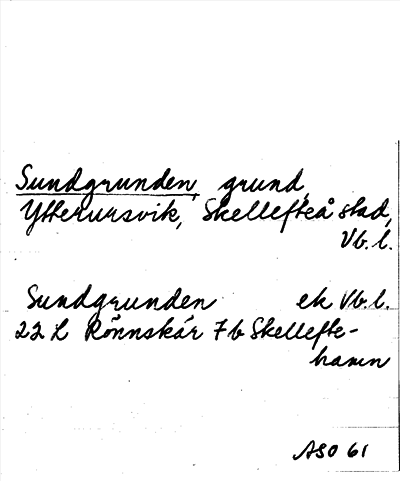 Sundgrunden, grund,
Ytterursvik, Skellefteå stad,
Vb. l.
Sundgrunden ek Vb. l.
22 L Rönnskär 7b Skellefte-
hamn
ASO 61